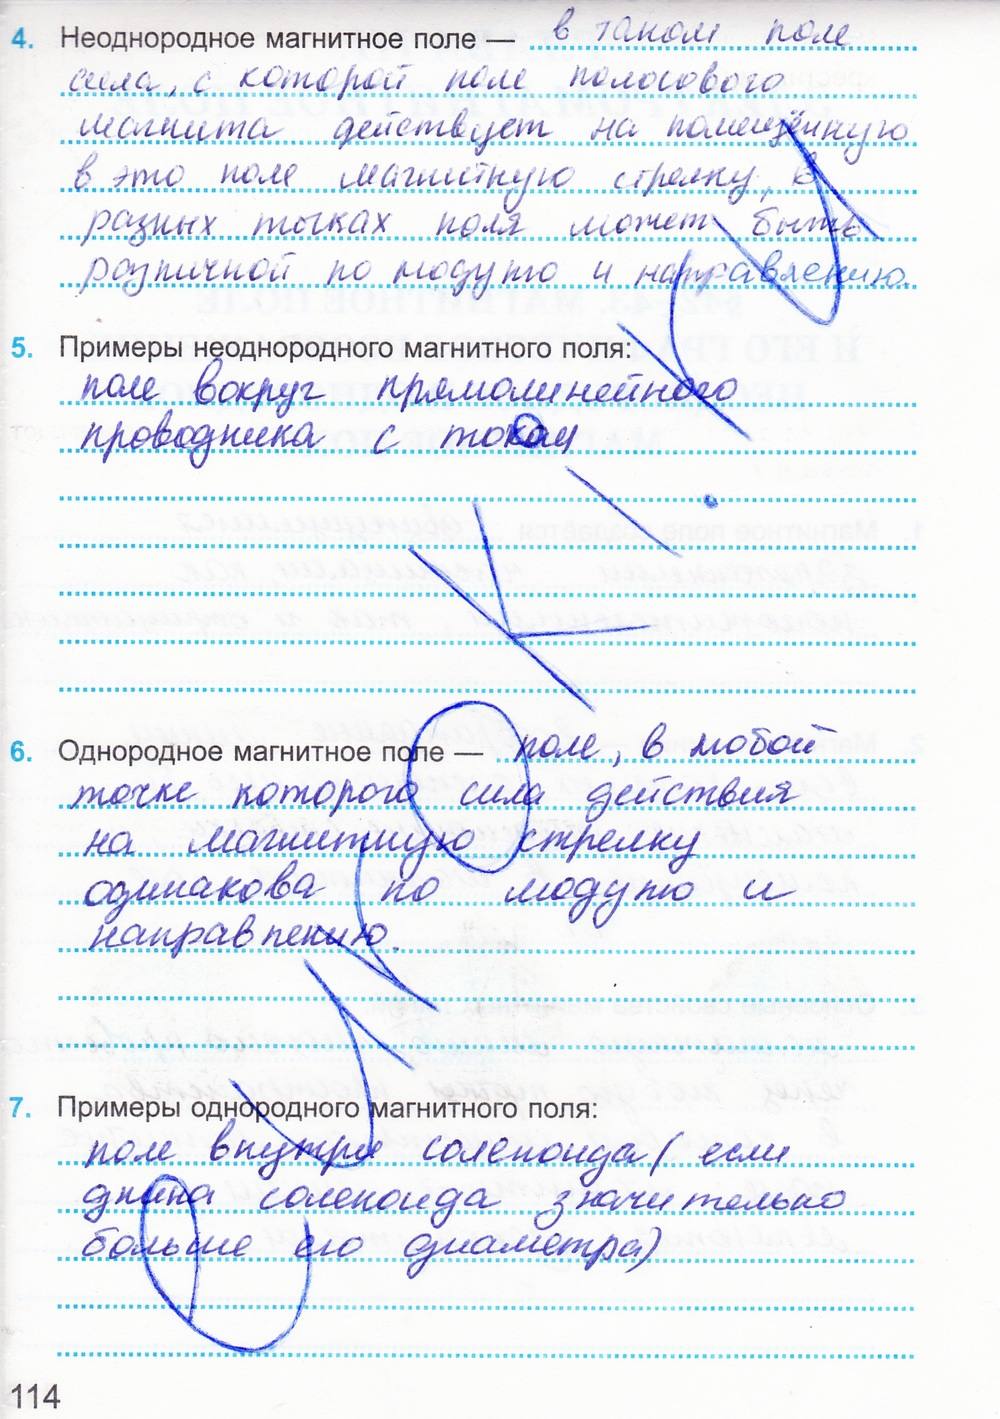 4. Неоднородное магнитное поле — в таком поле
сила, с которой поле полосового
магнита действует на помещённую
в это поле магнитную стрелку, в
разных точках поля может быть
различной по модулю и направлению.
5. Примеры неоднородного магнитного поля:
поле вокруг прямолинейного
проводника с током
6. Однородное магнитное поле — поле, в любой
точке которого сила действия
на магнитную стрелку
одинакова по модулю и
направлению.
7. Примеры однородного магнитного поля:
поле внутри соленоида (если
длина соленоида значительно
больше его диаметра)
114